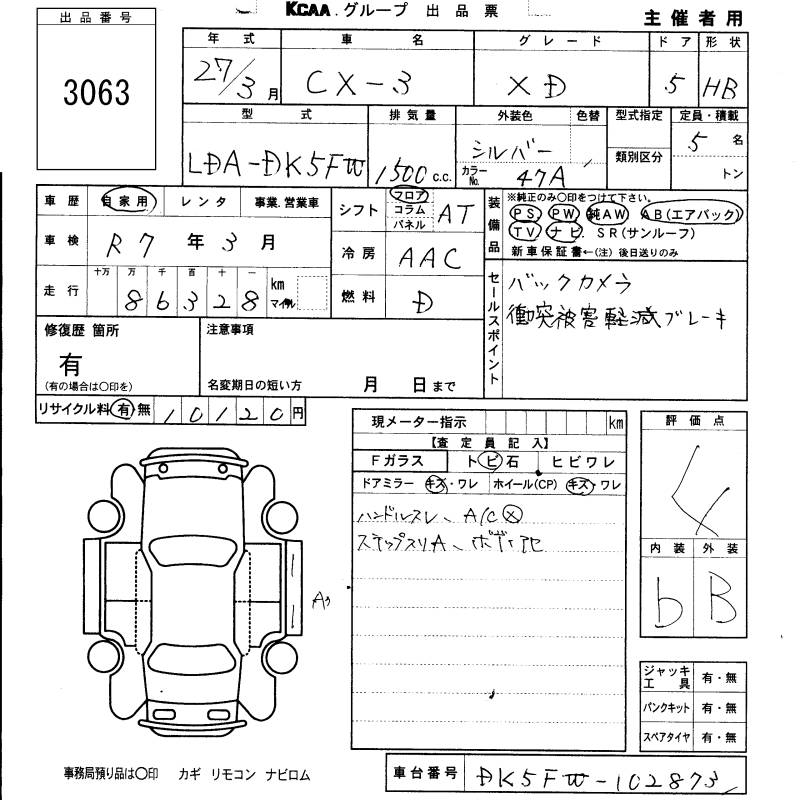 KCAA グループ 出品票
主催者用
出品番号
3063
年式 車名 グレード ドア 形状
27/3月 CX-3 XD 5 HB
型式 排気量 外装色 色替 型式指定 定員・積載
LDA-DK5FW 1500c.c. シルバー カラーNo. 47A 類別区分 5名
トン
車歴 自家用 レンタ 事業.営業車
車検 R7年3月
走行 十万 万 千 百 十 一 km マイル
86328
シフト フロア コラム パネル AT
冷房 AAC
燃料 D
装備品 ※純正のみ○印をつけて下さい。
PS PW 純AW AB(エアバック)
TV ナビ. SR(サンルーフ)
新車保証書←(注)後日送りのみ
セールスポイント
バックカメラ
衝突被害軽減ブレーキ
修復歴 箇所
有
(有の場合は○印を)
注意事項
名変期日の短い方 月 日まで
リサイクル料 有 無 10120円
現メーター指示 km
【査定員記入】
Fガラス トビ石 ヒビワレ
ドアミラー キズ・ワレ ホイール(CP) キズ・ワレ
ハンドルスレ、A/C
ステップスリA、
評価点
4
内装 外装
b B
A
ジャッキ工具 有・無
パンクキット 有・無
スペアタイヤ 有・無
事務局預り品は○印 カギ リモコン ナビロム
車台番号 DK5FW-102873